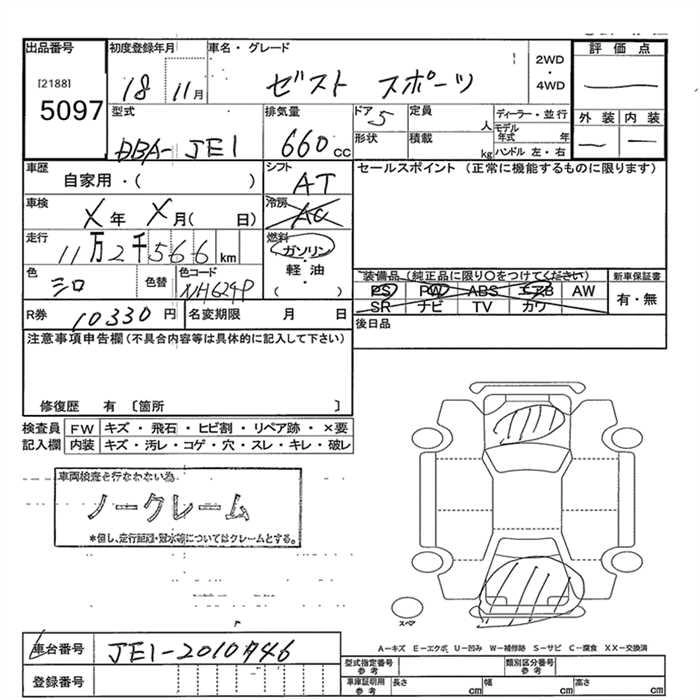 出品番号 初度登録年月 車名・グレード 評価点
[2188] 18 11月 ゼスト スポーツ 2WD
・
4WD
5097
型式 排気量 ドア 定員 ディーラー・並行 外装 内装
DBA-JE1 660cc 5 人 モデル年式 年
形状 積載 kg ハンドル 左・右
車歴 シフト セールスポイント (正常に機能するものに限ります)
自家用・( ) AT
車検 冷房
X年 X月( 日) AC
走行 燃料
11万2千566km ガソリン
・
軽油
( ・ )
色 色替 色コード 装備品(純正品に限り○をつけてください) 新車保証書
シロ NH624P PS PW ABS エアB AW 有・無
SR ナビ TV カワ
R券 10330円 名変期限 月 日 後日品
注意事項申告欄(不具合内容等は具体的に記入して下さい)
修復歴 有 〔箇所 〕
検査員 FW キズ・飛石・ヒビ割・リペア跡・×要
記入欄 内装 キズ・汚レ・コゲ・穴・スレ・キレ・破レ
車両検査を行なわない為
ノークレーム
*但し、走行距離・冠水等についてはクレームとする。
スペア
A－キズ E－エクボ U－凹み W－補修跡 S－サビ C－腐食 XX－交換済
車台番号 JE1-2010746
型式指定番号 参考 類別区分番号 参考
登録番号 車庫証明用 参考 長さ cm 幅 cm 高さ cm